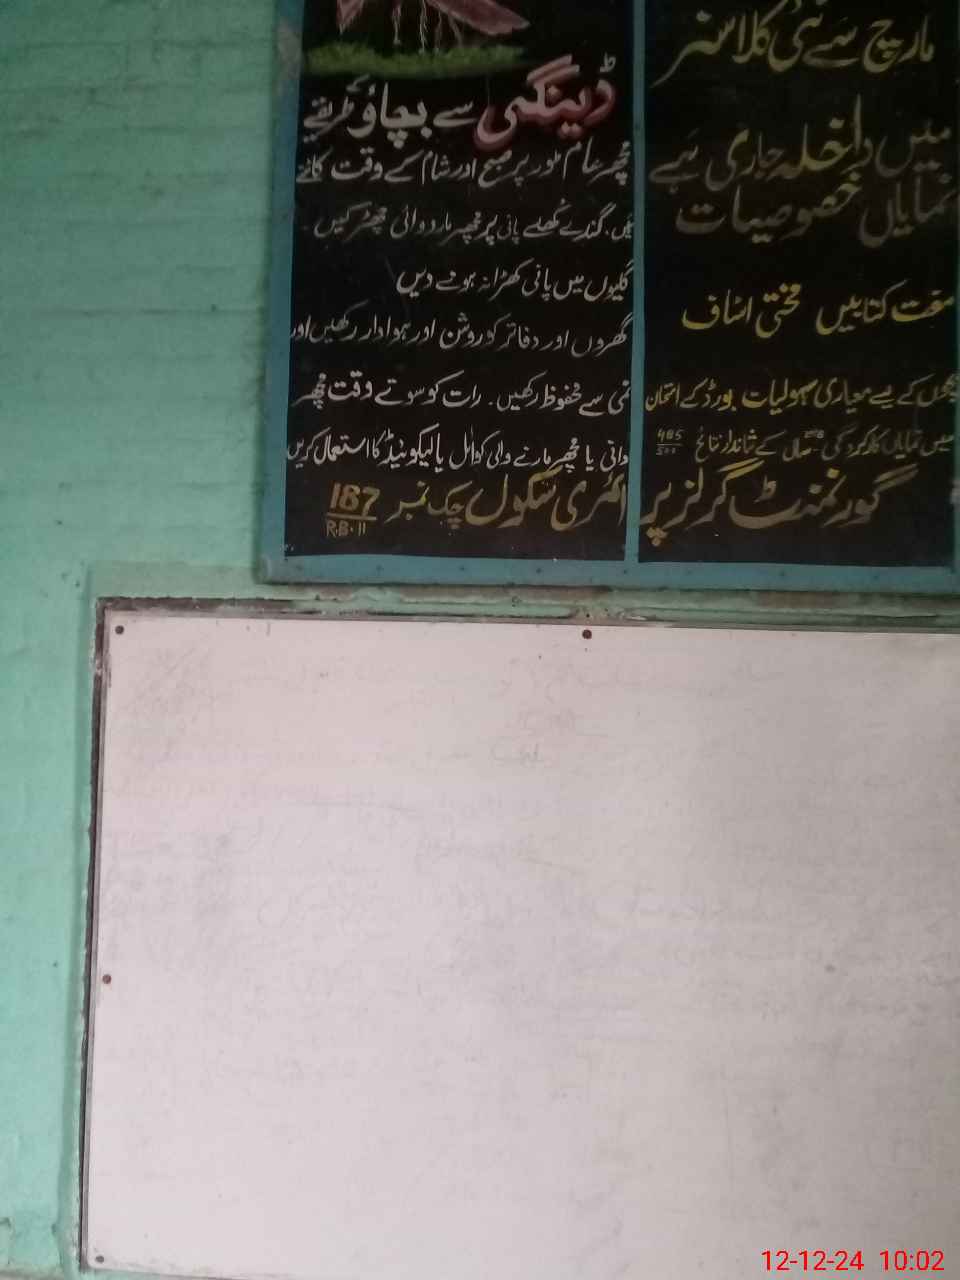 مارچ سے نئی کلاسز
میں داخلہ جاری ہے
نمایاں خصوصیات
مفت کتابیں محنتی اسٹاف
بچوں کے لیے معیاری سہولیات بورڈ کے امتحان
میں نمایاں کارکردگی سال کے شاندار نتائج 485/500
ڈینگی سے بچاؤ کے طریقے
مچھر عام طور پر صبح اور شام کے وقت کاٹتے
ہیں. گندے کھلے پانی پر مچھر مار دوائی چھڑکیں.
گلیوں میں پانی کھڑا نہ ہونے دیں
گھروں اور دفاتر کو روشن اور ہوادار رکھیں اور
نمی سے محفوظ رکھیں. رات کو سوتے وقت مچھر
دانی یا مچھر مارنے والی کوائل یا لیکوئیڈ کا استعمال کریں
گورنمنٹ گرلز پرائمری سکول چک نمبر 187/R.B.II
12-12-24 10:02